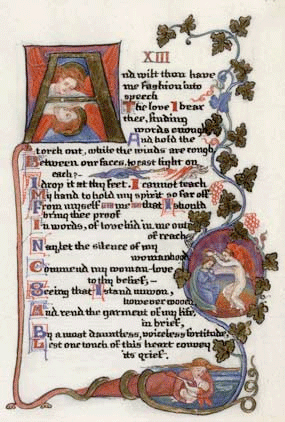 XIII
And wilt thou have
me fashion into
speech
The love I bear
thee, finding
words enough,
And hold the
torch out, while the winds are rough,
Between our faces, to cast light on
each?—
I drop it at thy feet. I cannot teach
My hand to hold my spirit so far off
From myself—me—that I should
bring thee proof
In words, of love hid in me out
of reach.
Nay, let the silence of my
womanhood
Commend my woman-love
to thy belief,—
Seeing that I stand unwon,
however wooed,
And rend the garment of my life,
in brief,
By a most dauntless, voiceless fortitude,
Lest one touch of this heart convey
its grief.